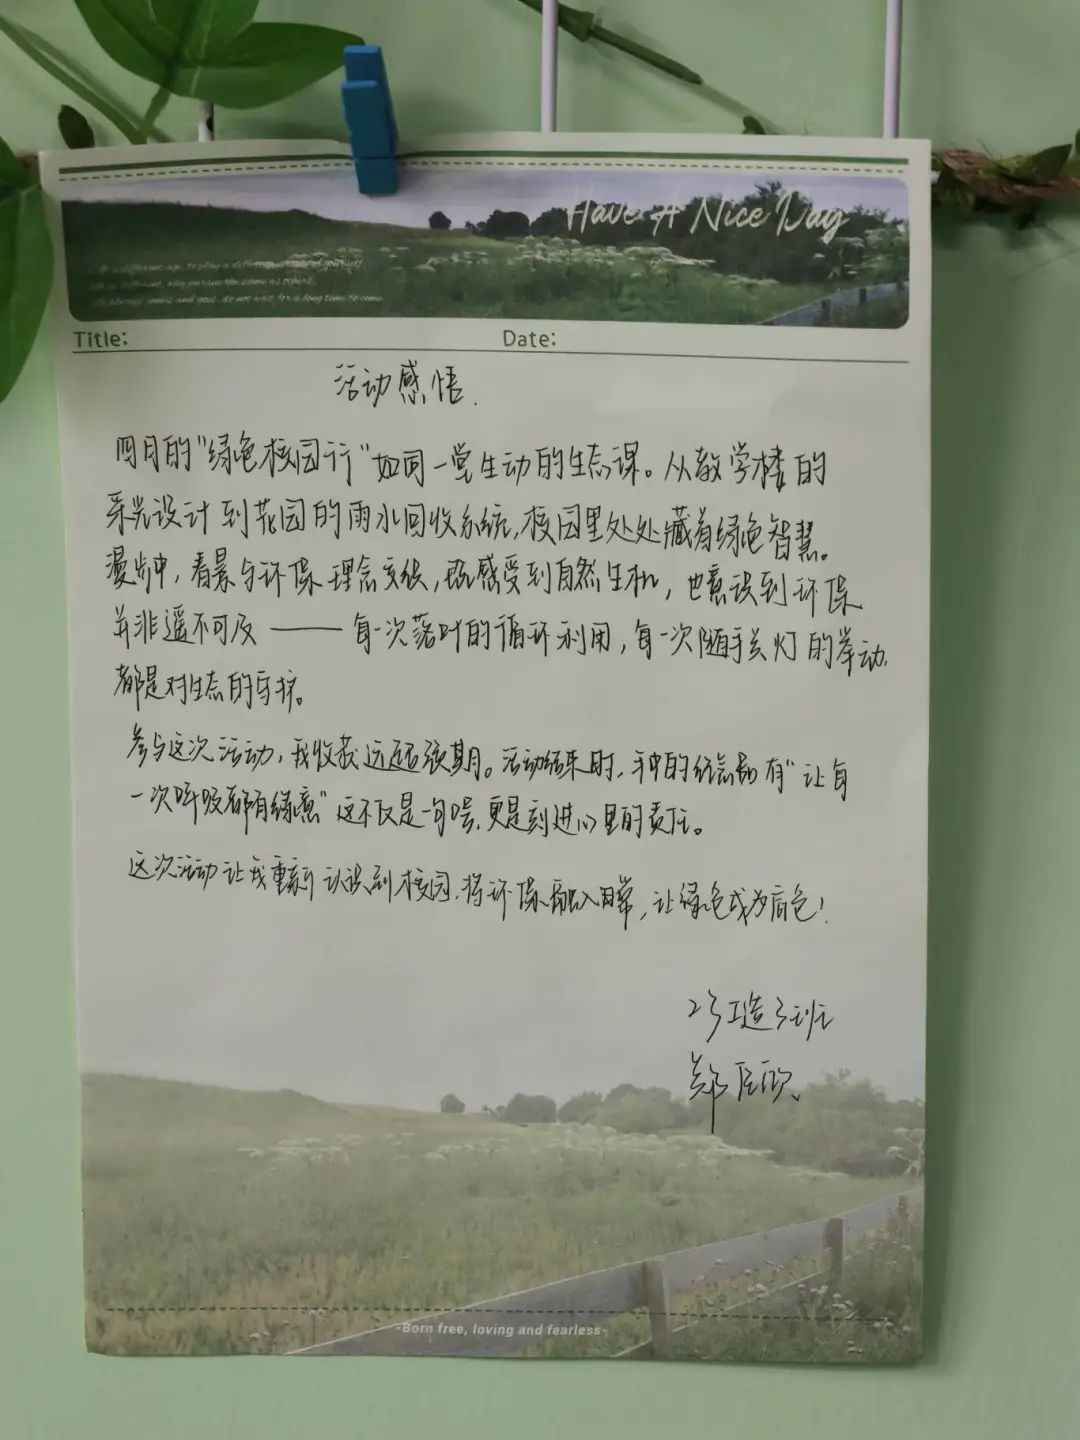 Have A Nice Day
Title: Date:
活动感悟.
四月的“绿色校园行”如同一堂生动的生态课。从教学楼的
采光设计到花园的雨水回收系统,校园里处处藏着绿色智慧。
漫步中,春景与环保理念交织,既感受到自然生机,也意识到环保
并非遥不可及——每一次落叶的循环利用,每一次随手关灯的举动,
都是对生态的守护。
参与这次活动,我收获远超预期。活动结束时,手中的 有“让每
一次呼吸都有绿意”这不仅是一句 ,更是刻进心里的责任。
这次活动让我重新认识到校园,将环保融入日常,让绿色成为底色!
23工造3班
郑 欣
-Born free, loving and fearless-